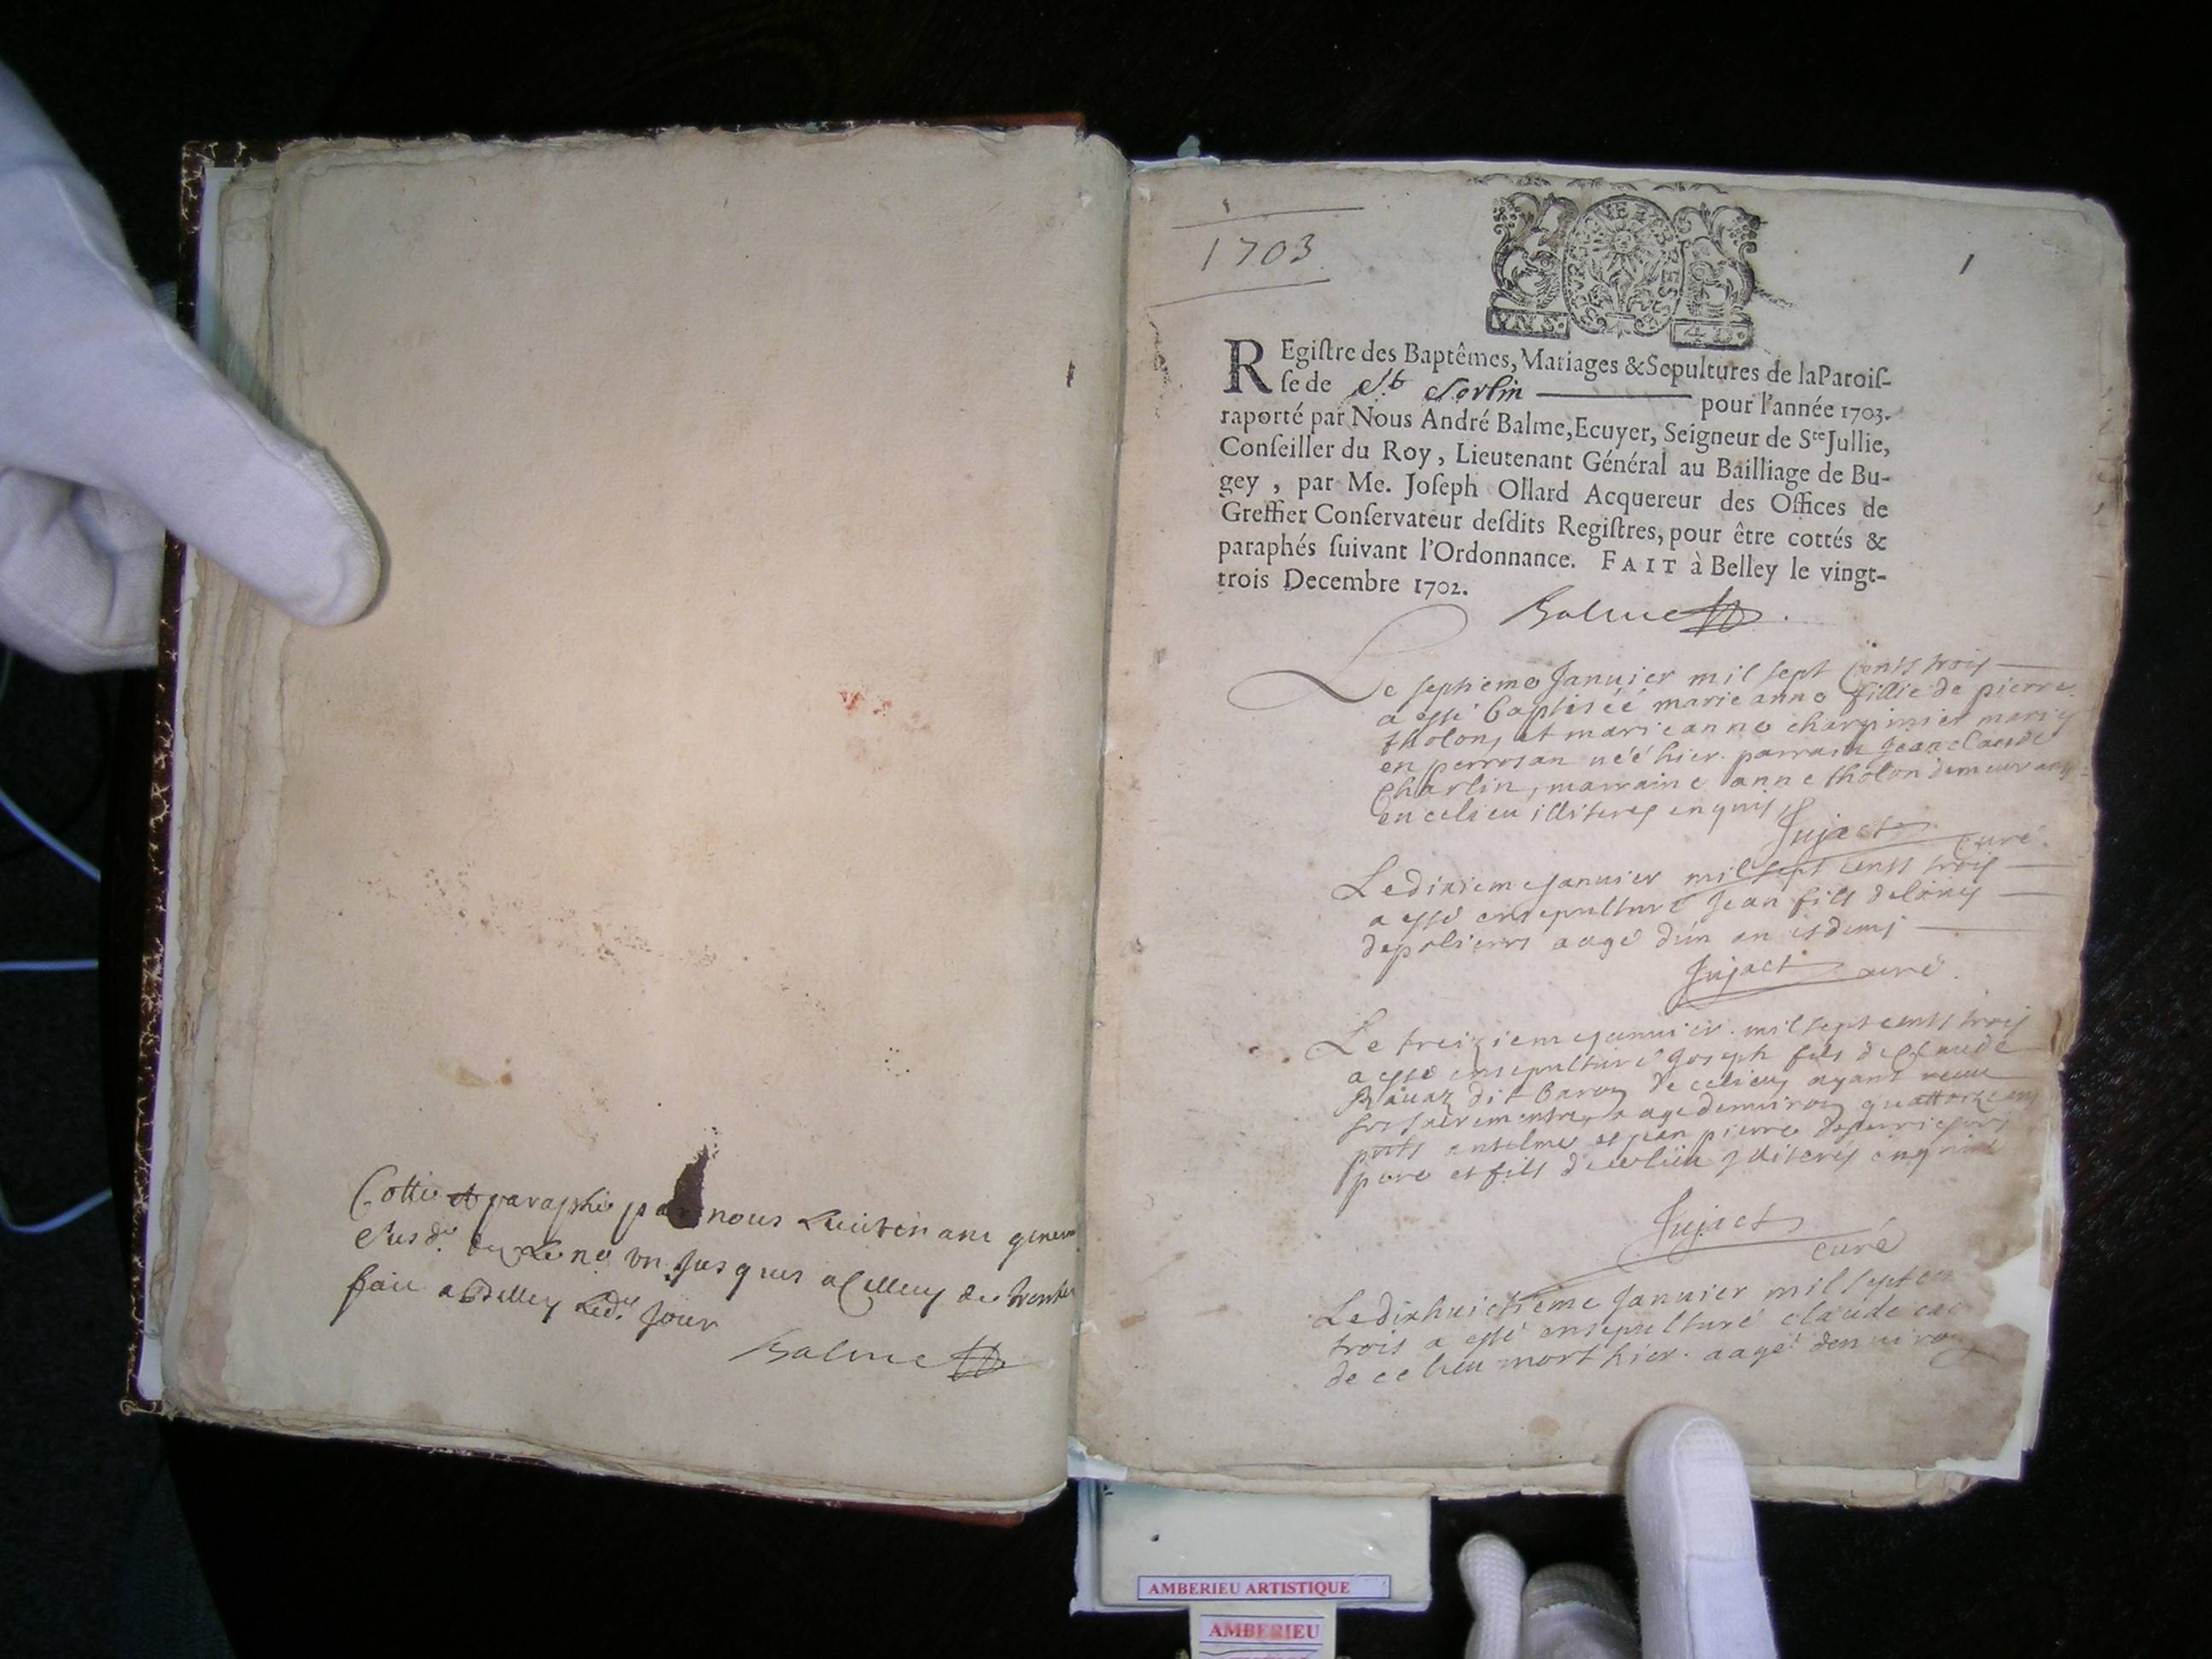 Cotté et paraphé par nous Lieutenant general
Susd.
fait a Belley led. Jour
Balme
1703
1
VN S.
4 D.
REgiſtre des Baptêmes, Mariages & Sepultures de la Paroiſ-
ſe de St Sorlin pour l'année 1703.
raporté par Nous André Balme, Ecuyer, Seigneur de Ste Jullie,
Conſeiller du Roy, Lieutenant Général au Bailliage de Bu-
gey, par Me. Joſeph Ollard Acquereur des Offices de
Greffier Conſervateur deſdits Regiſtres, pour être cottés &
paraphés ſuivant l'Ordonnance. FAIT à Belley le vingt-
trois Decembre 1702.
Balme
Le septieme Januier mil sept cents trois
a esté baptisée marie anne fillie de pierre
tholon, et marie anne
en perrozan néé hier. parrain Jean claude
Charlin, marraine anne tholon demeurant
en ce lieu illiteres enquis
Jujact curé
Le dixieme Januier mil sept cents trois
a esté ensepulturé Jean fils de
aagé d'un an et demi
Jujact curé.
Le treizieme Januier. mil sept cents trois
a esté ensepulturé Joseph fils de Claude
Rauaz dit Baron de ce lieu ayant receu
aagé denuiron quattorze ans
anselme et Jean pierre
pere et fils de ce lieu illiterés enquis
Jujact
curé
Le dixhuictieme Januier mil sept
trois a esté ensepulturé claude
de ce lieu mort hier. aagé denuiron
AMBERIEU ARTISTIQUE
AMBERIEU